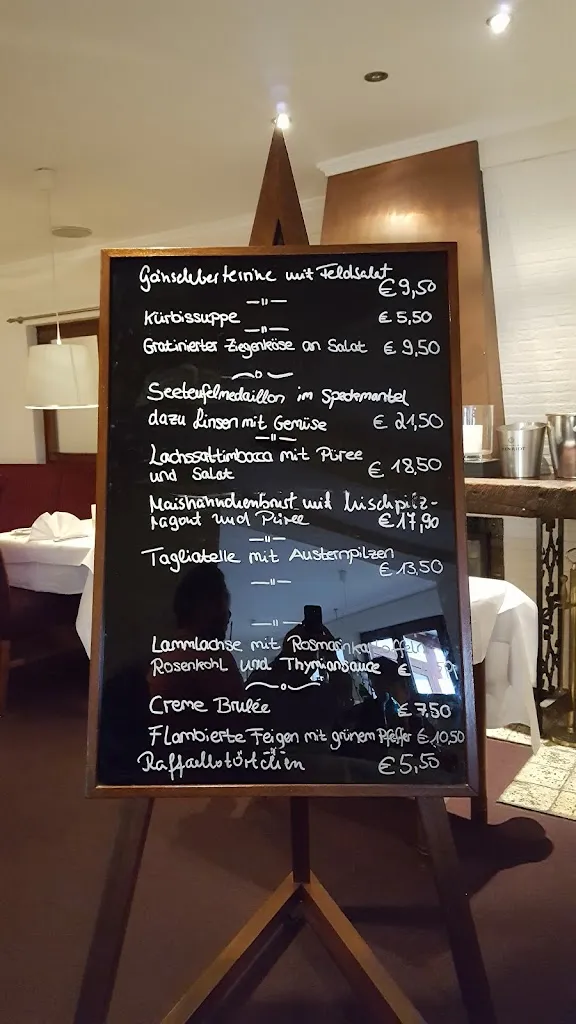 Gänseleberterrine mit Feldsalat
€ 9,50
Kürbissuppe € 5,50
Gratinierter Ziegenkäse an Salat € 9,50
Seeteufelmedaillon im Speckmantel
dazu Linsen mit Gemüse € 21,50
Lachssaltimbocca mit Püree
und Salat € 18,50
Maishähnchenbrust mit Mischpilz-
ragout und Püree € 17,90
Tagliatelle mit Austernpilzen
€ 13,50
Lammlachse mit Rosmarinkartoffeln
Rosenkohl und Thymiansauce €
Creme Brulée € 7,50
Flambierte Feigen mit grünem Pfeffer € 10,50
Raffaellotörtchen € 5,50